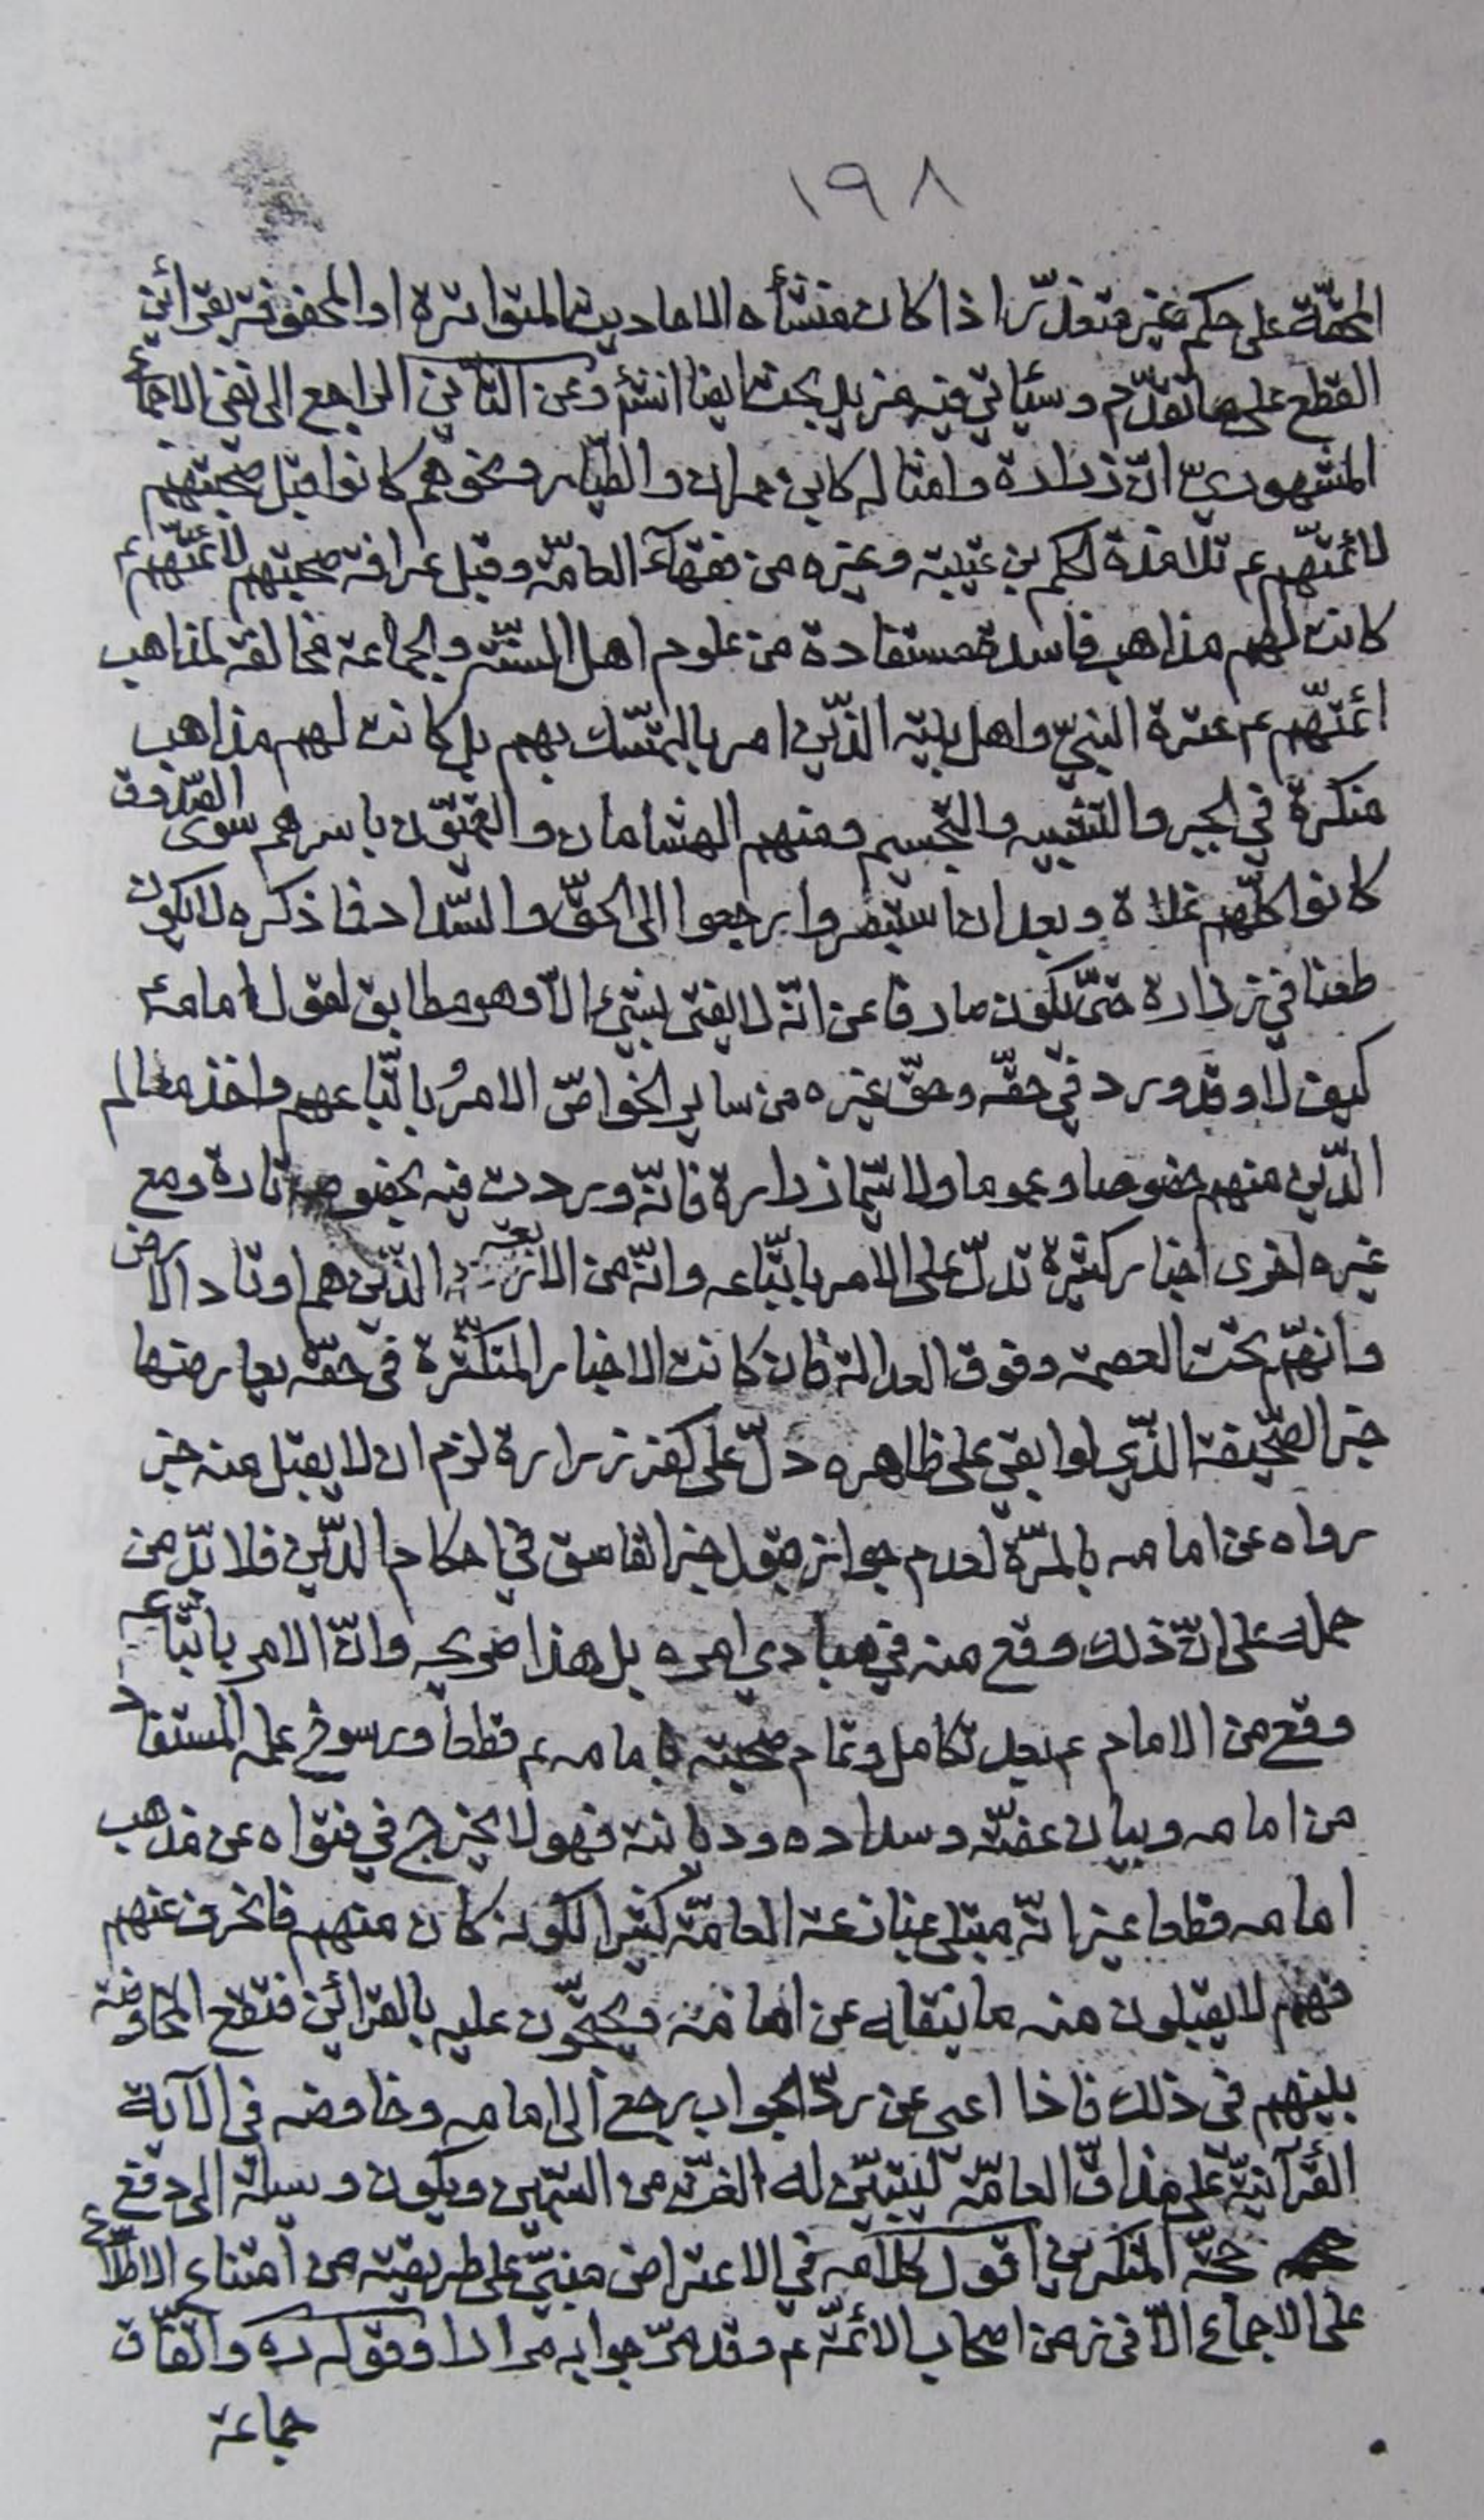 ١٩٨
المحقّة على حكم غير متعذّر اذا كان منشأه الاحاديث المتواترة او المحفوفة بقرائن
القطع على ما تقدّم وسيأتي فيه مزيد بحث ايضا انشٓم وعن الثاني الراجع الى نفي الاجماع
المشهوريّ انّ زرارة وامثاله كابن حمران والطيّار ونحوهم كانوا قبل صحبتهم
لائمّتهم ع تلامذة لحكم بن عتيبة وغيره من فقهآء العامّة وقبل عرافة صحبتهم لائمّتهم ع
كانت لهم مذاهب فاسدة مستفادة من علوم اهل السنّة والجماعة مخالفة لمذاهب
ائمّتهم ع عترة النبيّ واهل بيته الذّين امر بالتمسّك بهم بل كانت لهم مذاهب
منكرة في الجبر والتشبيه والتجسيم ومنهم الهشامان والقميّون باسرهم سوى الصّدوق
كانوا كلّهم غلاة وبعد ان استبصروا رجعوا الى الحقّ والسّداد فما ذكره لا يكون
طعنا في زرارة حتّى يكون صارفا عن انّه لا يفتى بشيء الّا وهو مطابق لقول امامه
كيف لا وقد ورد في حقّه وحقّ غيره من ساير الخواصّ الامر باتّباعهم واخذ معالم
الدّين منهم خصوصا وعموما ولا سيّما زرارة فانّه وردت فيه بخصوصه تارة ومع
غيره اخرى اخبار كثيرة تدلّ على الامر باتّباعه وانّه من الاربعة الذّين هم اوتاد الارض
وانّهم تحت العصمة وفوق العدالة فان كانت الاخبار المتكثّرة في حقّه يعارضها
خبر الصّحيفة الذّي لو ابقي على ظاهره دلّ على كفر زرارة لزم ان لا يقبل منه خبر
رواه عن امامه بالمرّة لعدم جواز قبول خبر الفاسق في احكام الدّين فلا بدّ من
حمله على انّ ذلك وقع منه في مبادي امره بل هذا صريحه وانّ الامر باتّباعه
وقع من الامام ع بعد تكامل وتمام صحبته بامامه ع قطعا ورسوخ علمه المستفاد
من امامه وبيان عفّته وسداده وديانته فهو لا يخرج في فتواه عن مذهب
امامه قطعا غير انّه مبتلى بمنازعة العامّة كثيرا لكونه كان منهم فانحرف عنهم
فهم لا يقبلون منه ما ينقله عن امامه ويحتجّون عليه بالقرائن فتقع المحاورة
بينهم في ذلك فاذا اعيى عن ردّ الجواب رجع الى امامه وخاوضه في الآية
القرآنيّة على مذاق العامّة ليتبيّن له الغثّ من السّمين ويكون وسيلة الى دفع
حجّة المنكرين اقول كلامه في الاعتراض مبنيّ على طريقته من امتناع الاطّلاع
على الاجماع الّا في زمن اصحاب الائمّة ع وقد مرّ جوابه مرارا وقوله ره واتّفاق
جماعة